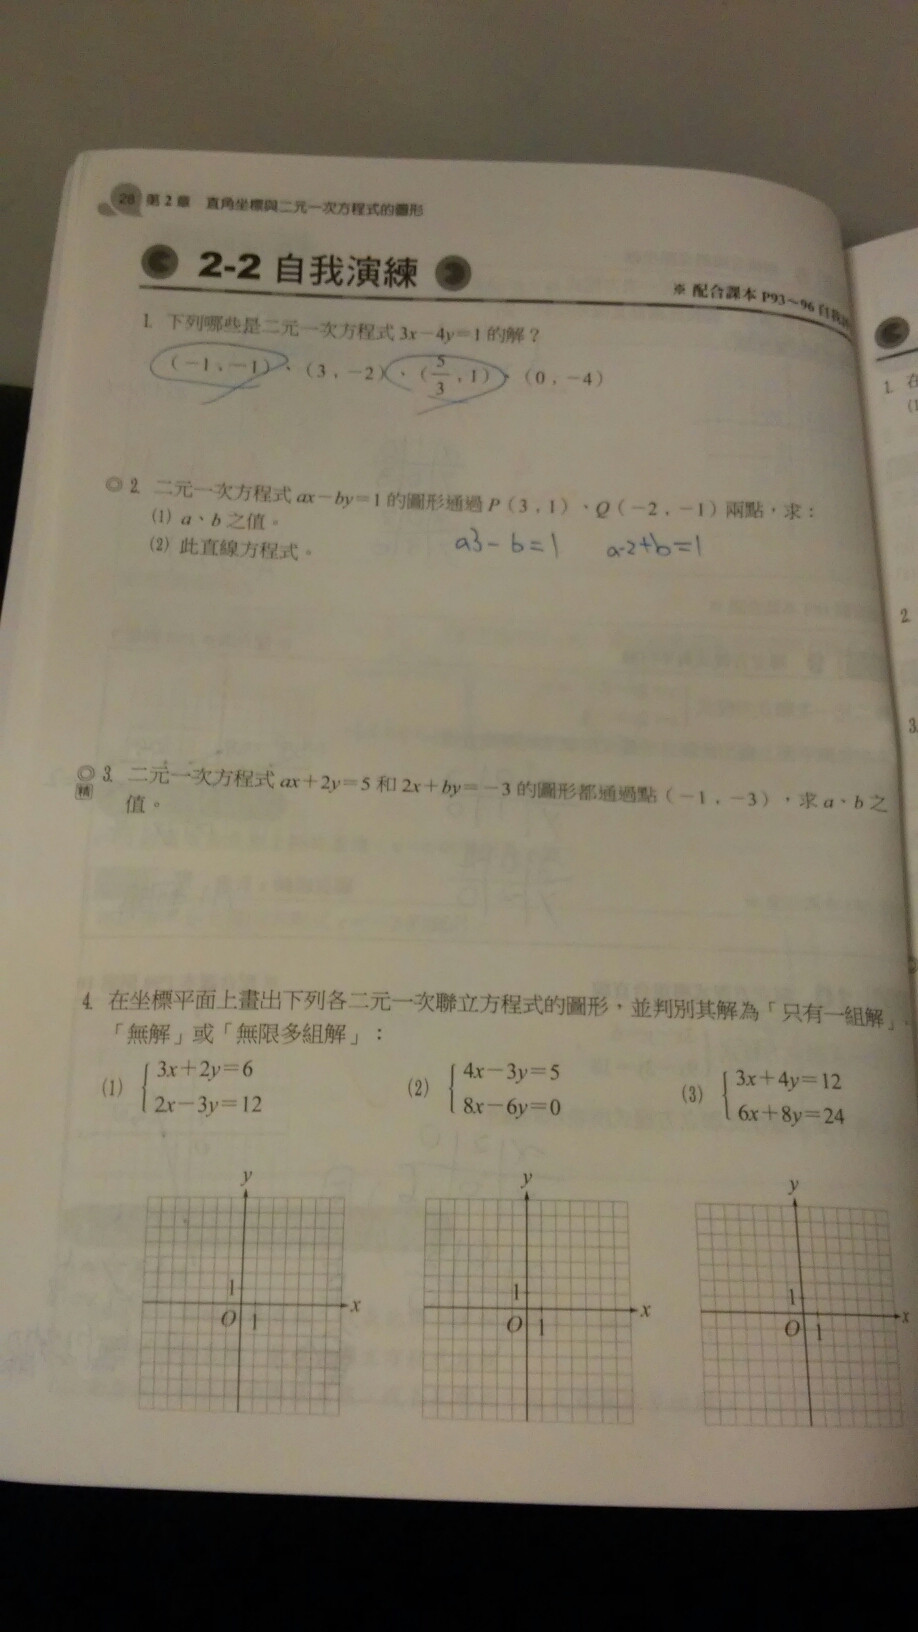 28 第2章 直角坐標與二元一次方程式的圖形
2-2 自我演練
※ 配合課本 P93~96 自我評
1. 下列哪些是二元一次方程式 3x-4y=1 的解？
(-1、-1)、(3,-2)、(5/3,1)、(0,-4)
◎ 2. 二元一次方程式 ax-by=1 的圖形通過 P(3,1)、Q(-2,-1) 兩點，求：
(1) a、b 之值。
(2) 此直線方程式。
a3-b=1 a-2+b=1
◎ 3. 二元一次方程式 ax+2y=5 和 2x+by=-3 的圖形都通過點(-1,-3)，求 a、b 之
精 值。
4. 在坐標平面上畫出下列各二元一次聯立方程式的圖形，並判別其解為「只有一組解」、
「無解」或「無限多組解」：
(1) { 3x+2y=6
2x-3y=12
(2) { 4x-3y=5
8x-6y=0
(3) { 3x+4y=12
6x+8y=24
y
1
O 1 x
y
1
O 1 x
y
1
O 1 x
1. 在
(1
2.
3.